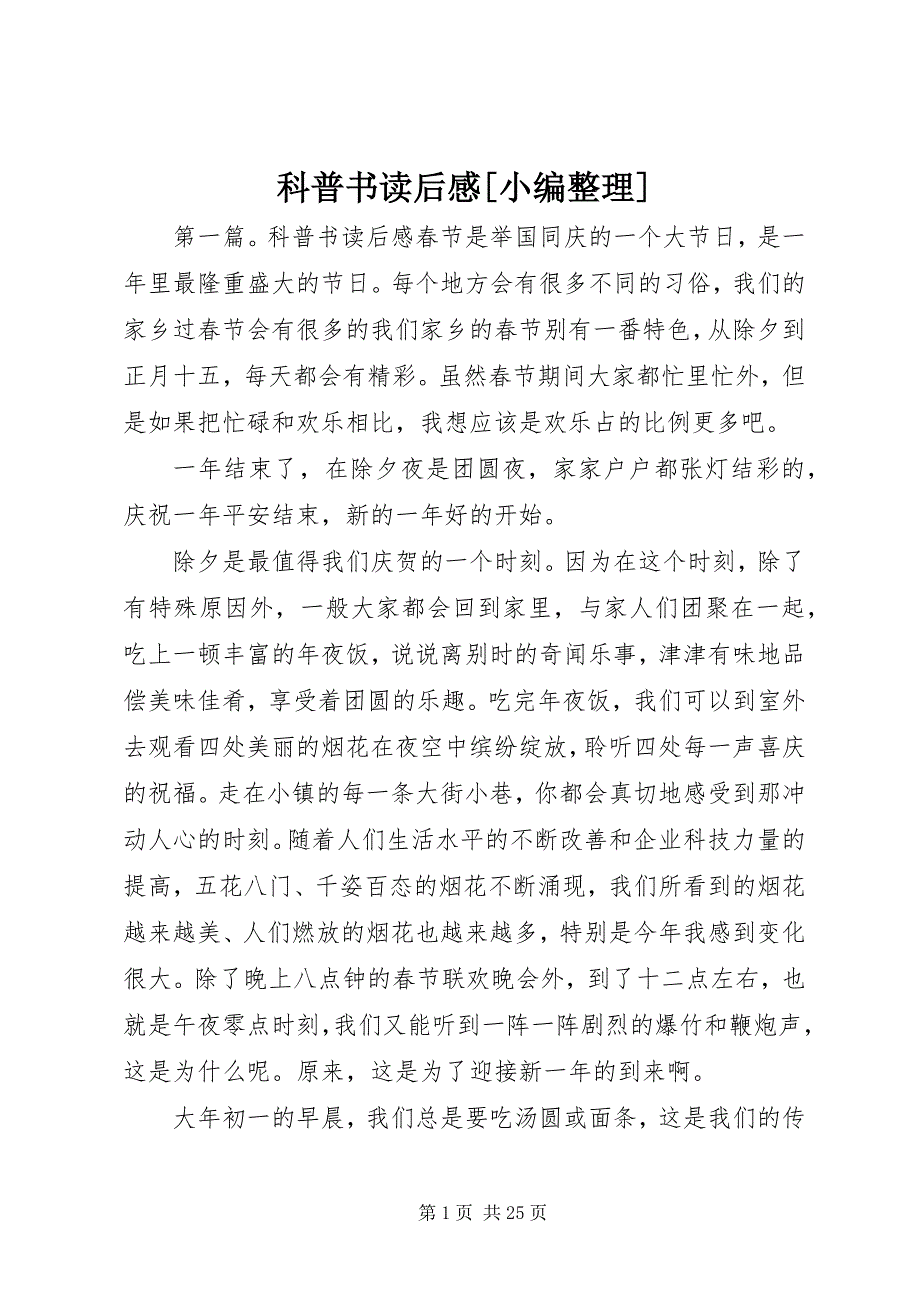 科普书读后感[小编整理]
第一篇。科普书读后感春节是举国同庆的一个大节日，是一
年里最隆重盛大的节日。每个地方会有很多不同的习俗，我们的
家乡过春节会有很多的我们家乡的春节别有一番特色，从除夕到
正月十五，每天都会有精彩。虽然春节期间大家都忙里忙外，但
是如果把忙碌和欢乐相比，我想应该是欢乐占的比例更多吧。
一年结束了，在除夕夜是团圆夜，家家户户都张灯结彩的，
庆祝一年平安结束，新的一年好的开始。
除夕是最值得我们庆贺的一个时刻。因为在这个时刻，除了
有特殊原因外，一般大家都会回到家里，与家人们团聚在一起，
吃上一顿丰富的年夜饭，说说离别时的奇闻乐事，津津有味地品
偿美味佳肴，享受着团圆的乐趣。吃完年夜饭，我们可以到室外
去观看四处美丽的烟花在夜空中缤纷绽放，聆听四处每一声喜庆
的祝福。走在小镇的每一条大街小巷，你都会真切地感受到那冲
动人心的时刻。随着人们生活水平的不断改善和企业科技力量的
提高，五花八门、千姿百态的烟花不断涌现，我们所看到的烟花
越来越美、人们燃放的烟花也越来越多，特别是今年我感到变化
很大。除了晚上八点钟的春节联欢晚会外，到了十二点左右，也
就是午夜零点时刻，我们又能听到一阵一阵剧烈的爆竹和鞭炮声，
这是为什么呢。原来，这是为了迎接新一年的到来啊。
大年初一的早晨，我们总是要吃汤圆或面条，这是我们的传
第 1 页 共 25 页